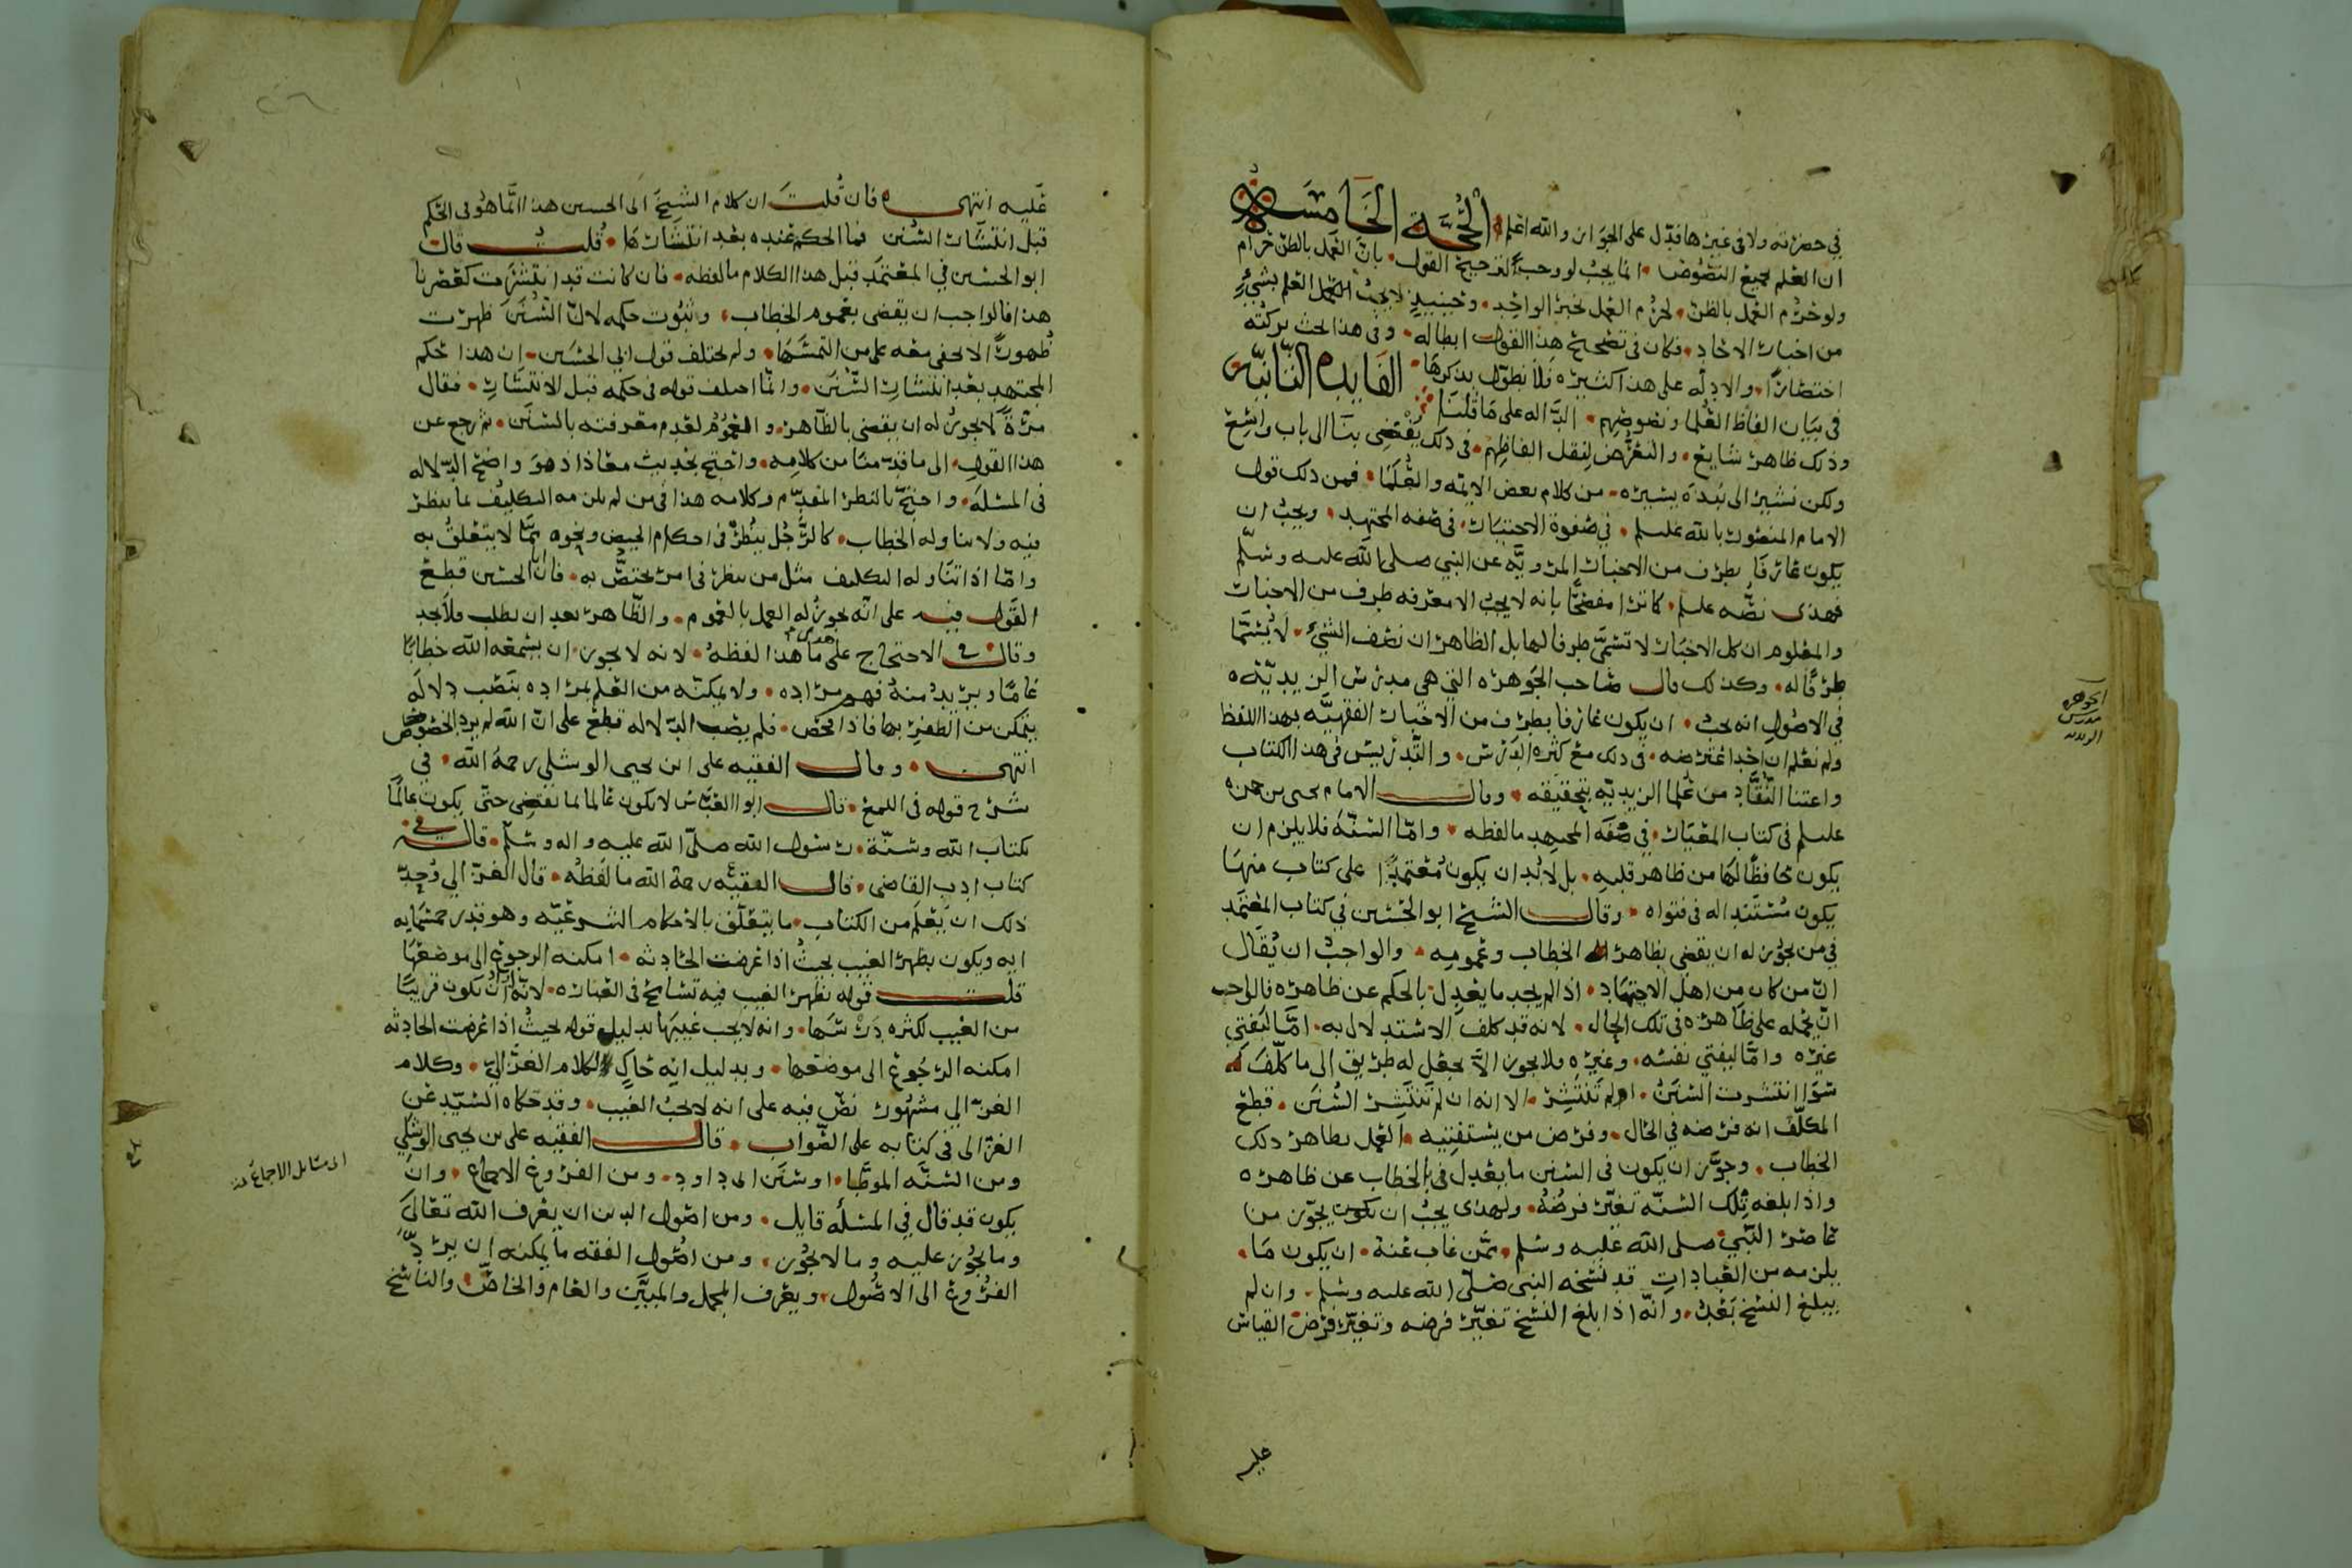 في حضرته ولا في غيرها فدل على الجواز والله اعلم الحجة الخامسة
ان العلم بجميع النصوص انما يجب لو وجب الترجيح القول بان العمل بالظن حرام
ولو حرم العمل بالظن لحرم العمل بخبر الواحد وحينيذ لا يجب العلم بشيء
من اخبار الاحاد فكان في تصحيح هذا القول ابطاله وفي هذا بحث تركته
اختصارا والادلة على هذا كثيره فلا نطول بذكرها الفايدة الثانية
في بيان الفاظ العلما ونصوصهم الدالة على ما قلنا
وذلك ظاهر شايع والتعرض لنقل الفاظهم في ذلك يفضي بنا الى باب واسع
ولكن نشير الى نبذة يسيره من كلام بعض الايمه والعلما فمن ذلك قول
الامام المنصور بالله عليلم في صفوة الاختيار في صفه المجتهد ويجب ان
يكون عارفا بطرف من الاخبار المروية عن النبي صلى الله عليه وسلم
فهذى نصه عليلم كاترا مفصحا بانه لا يجب الا معرفه طرف من الاخبار
والمعلوم ان كل الاخبار لا تسمى طرفا لها بل الظاهر ان نصف الشيء لا يسمى
طرفا له وكذلك قال صاحب الجوهره التي هي مدرس الزيديه
في الاصول انه يجب ان يكون عارفا بطرف من الاخبار الفقهيه بهذا اللفظ
ولم نعلم ان احدا اعترضه في ذلك مع كثره الدرس والتدريس في هذا الكتاب
واعتنا النقاد من علما الزيديه بتحقيقه وقال الامام يحيى بن حمزه
عليلم في كتاب المعيار في صفه المجتهد ما لفظه واما السنة فلا يلزم ان
يكون محافظا لها من ظاهر قلبه بل لا بد ان يكون معتمدا على كتاب منها
يكون مستندا له في فتواه وقال الشيخ ابو الحسين في كتاب المعتمد
في من يجوز له ان يقضي بظاهر الخطاب وعمومه والواجب ان يقال
ان من كان من اهل الاجتهاد اذا لم يجد ما يعدل بالحكم عن ظاهره فالواجب
ان يحمله على ظاهره في تلك الحال لانه قد كلف الاستدلال به اما ليفتي
غيره واما ليفتي نفسه وغيره ولا يجوز الا يجعل له طريق الى ما كلف
سوا انتشرت السنن او لم تنتشر الا انه ان لم تنتشر السنن قطع
المكلف انه فرضه في الحال وفرض من يستفتيه العمل بظاهر ذلك
الخطاب وجوز ان يكون في السنن ما يعدل في بالخطاب عن ظاهره
واذا بلغه تلك السنة تغير فرضه ولهذى يجب ان يكون يجوز من
عاصر النبي صلى الله عليه وسلم ممن غاب عنه ان يكون ما
يلزمه من العبادات قد نسخه النبي صلى الله عليه وسلم وان لم
يبلغ النسخ بعد وانه اذا بلغ النسخ تغير فرضه وتغير فرض القياس
عليه
الجوهره
مدرس
عليه انتهى فان قلت ان كلام الشيخ ابي الحسين هذا انما هو في الحكم
قبل انتشار السنن فما الحكم عنده بعد انتشارها قلت قال
ابو الحسين في المعتمد قبل هذا الكلام ما لفظه فان كانت قد انتشرت كعصرنا
هذا فالواجب ان يقضي بعموم الخطاب وثبوت حكمه لان السنن ظهرت
ظهورا لا تخفى معه على من التمسها ولم يختلف قول ابي الحسين ان هذا حكم
المجتهد بعد انتشار السنن وانما اختلف قوله في حكمه قبل الانتشار فقال
مرة لا يجوز له ان يقضي بالظاهر والعموم لعدم معرفته بالسنن ثم رجع عن
هذا القول الى ما قدمنا من كلامه واحتج بحديث معاذ اذ هو واضح الدلاله
في المسله واحتج بالنظر المقدم وكلامه هذا في من لم يلزمه التكليف بما ينظر
فيه ولا يتناوله الخطاب كالرجل ينظر في احكام الحيض ونحوه مما لا يتعلق به
واما اذا تناوله التكليف مثل من ينظر في امر يختص به فان ابا الحسين قطع
القول فيه على انه يجوز له العمل بالعموم والظاهر بعد ان يطلب فلا يجد
وقال في الاحتجاج على هذى ما هذا لفظه لانه لا يجوز ان يسمعه الله خطابا
عاما ويريد منه فهم مراده ولا يمكنه من العلم بمراده بنصب دلالة
يتمكن من الظفر بها فاذا فحص فلم يصب الدلاله قطع على ان الله لم يرد الخصوص
انتهى وقال الفقيه علي بن يحيى الوشلي رحمه الله في
شرح قوله في اللمع قال ابو العباس لا يكون عالما بما يقضي حتى يكون عالما
بكتاب الله وسنة رسول الله صلى الله عليه واله وسلم قال في
كتاب ادب القاضي قال الفقيه ع رحمة الله ما لفظه قال الغزالي وحد
ذلك ان يعلم من الكتاب ما يتعلق بالاحكام الشرعيه وهو قدر خمسمايه
ايه ويكون بظهر الغيب بحيث اذا عرضت الحادثه امكنه الرجوع الى موضعها
قلت قوله بظهر الغيب فيه تسامح في العباره لانه اراد ان يكون قريبا
من الغيب لكثره درسها وانه لا يجب غيبها بدليل قوله بحيث اذا عرضت الحادثه
امكنه الرجوع الى موضعها وبدليل انه حاك لكلام الغزالي وكلام
الغزالي مشهور نص فيه على انه لا يجب الغيب وقد حكاه السيد عن
الغزالي في كتابه على الصواب قال الفقيه علي بن يحيى الوشلي
ومن السنه الموطا او سنن ابي داود ومن الفروع الاجماع وان
يكون قد قال في المسله قايل ومن اصول الدين ان يعرف الله تعالى
وما يجوز عليه وما لا يجوز ومن اصول الفقه ما يمكنه ان يرد
الفروع الى الاصول ويعرف المجمل والمبين والعام والخاص والناسخ
اي مسايل الاجماع